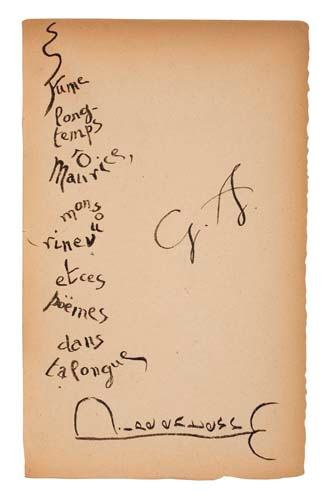 Fume
long-
temps
Ô
Maurice,
mons
ou
rinev
etces
poëmes
dans
talongue
G. A.